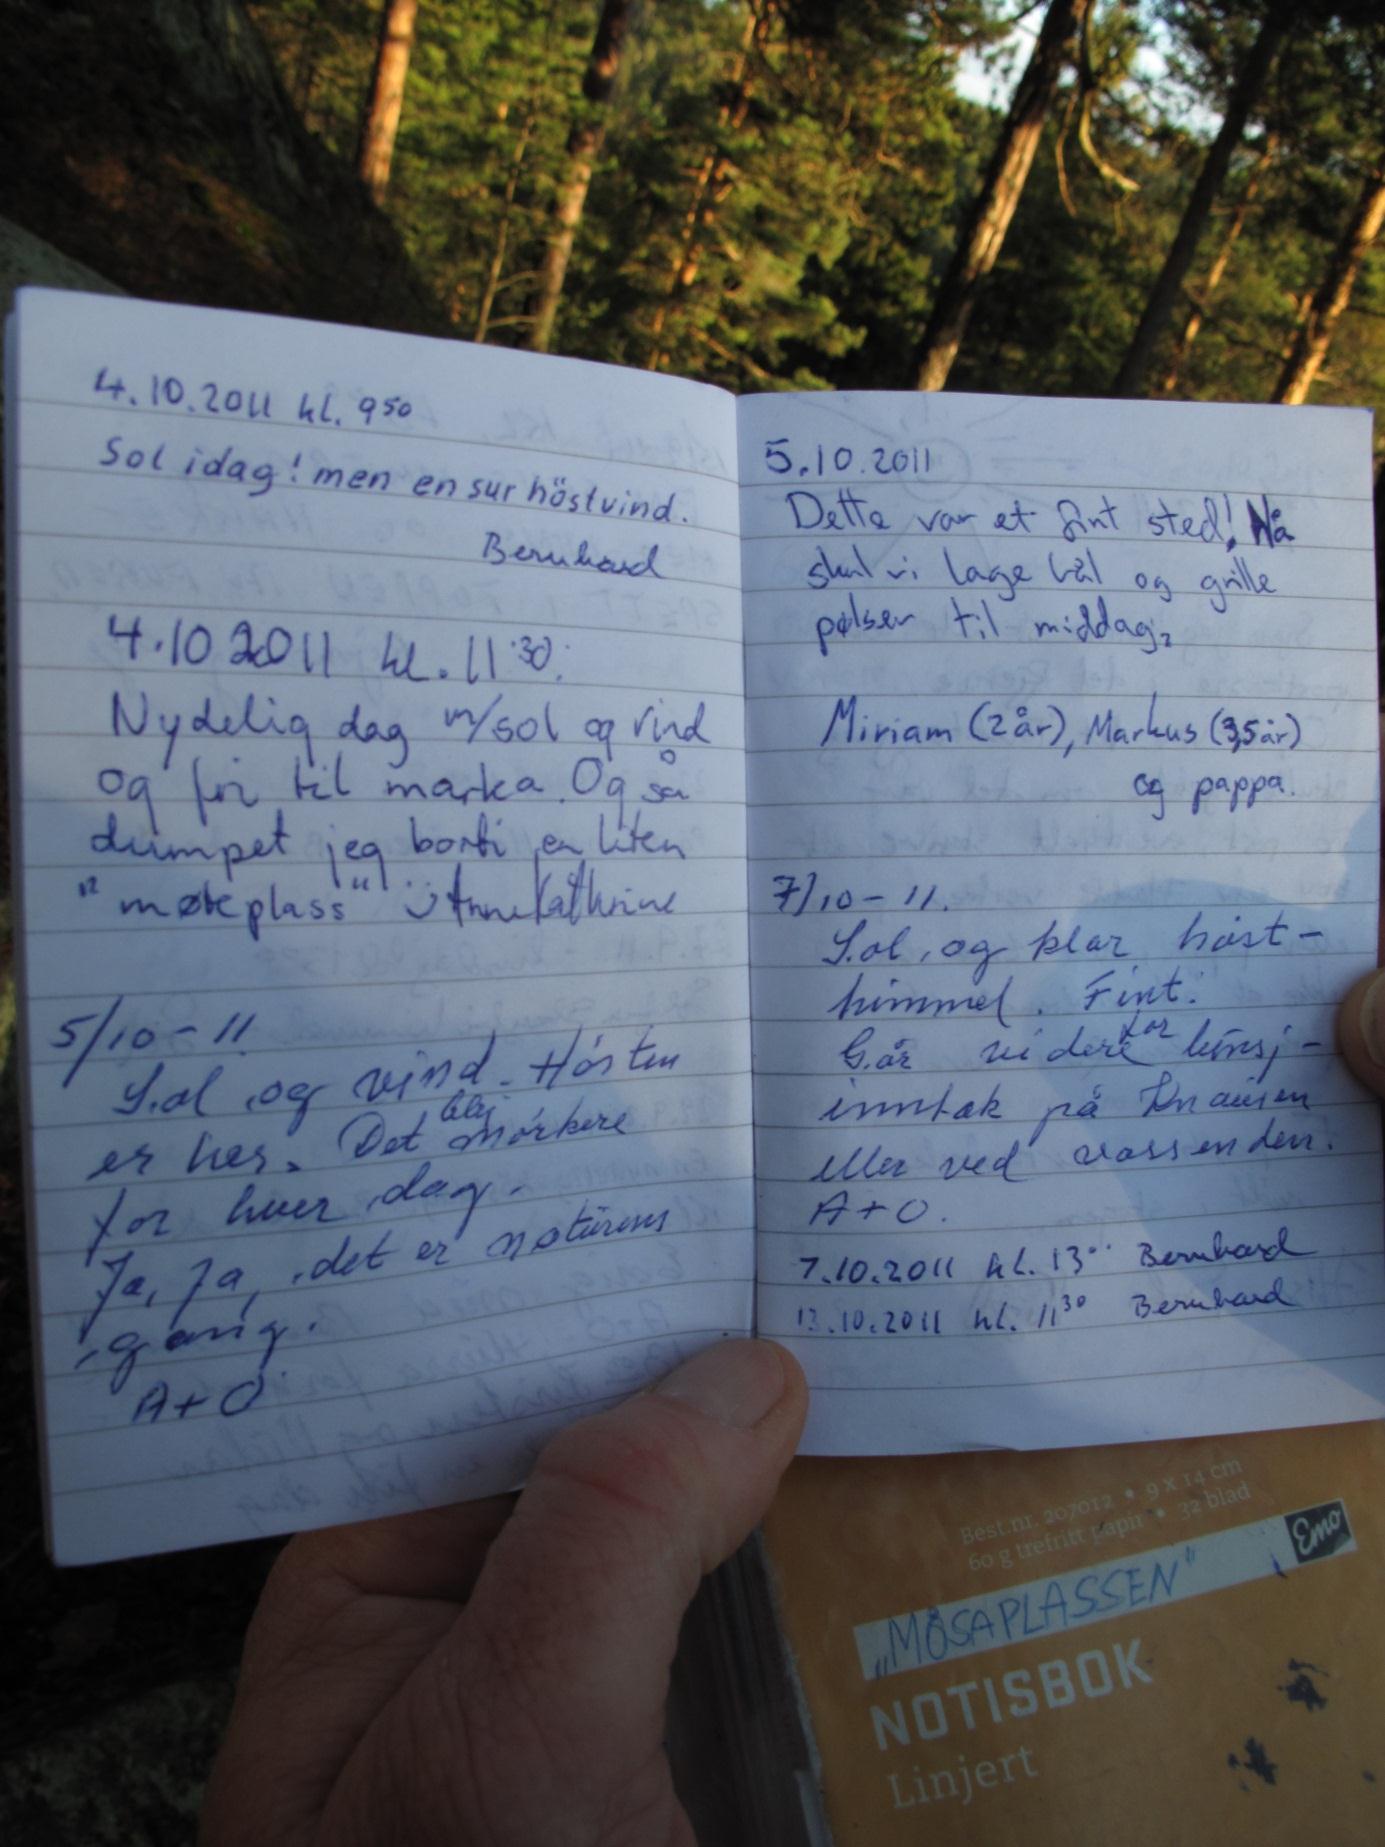 4.10.2011 kl. 9⁵⁰
Sol idag! men en sur höstvind.
Bernhard
4.10 2011 kl. 11:30.
Nydelig dag m/sol og vind
og fri til marka. Og så
dumpet jeg borti en liten
"møteplass" Anne Kathrine
5/10-11
Sol og vind. Hösten
er her. Det blir mörkere
for hver dag.
Ja, Ja, det er naturens
gang.
A+O
5.10.2011
Dette var et fint sted! Nå
skal vi lage bål og grille
pølser til middag.
Miriam (2 år), Markus (3,5 år)
og pappa.
7/10-11.
Sol og klar höst-
himmel. Fint.
Går videre for lunsj-
inntak på Knausen
eller ved vassenden.
A+O.
7.10.2011 kl. 13⁰⁰ Bernhard
13.10.2011 kl. 11³⁰ Bernhard
Best.nr. 207012 • 9 x 14 cm
60 g trefritt papir • 32 blad
Emo
„MÖSAPLASSEN"
NOTISBOK
Linjert